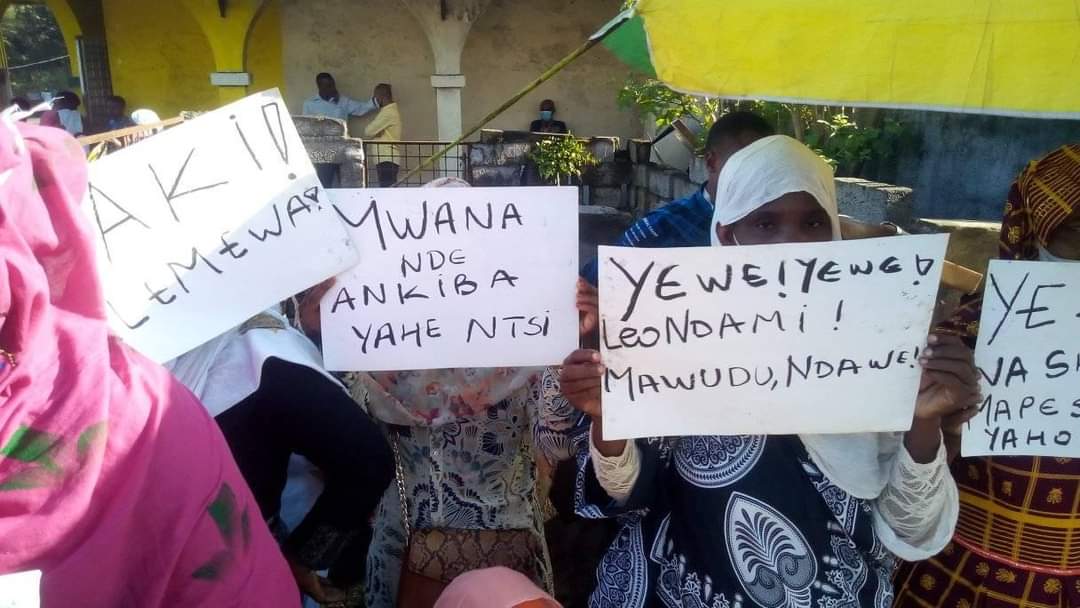 AKI!
MWANA
NDE
ANKIBA
YAHE NTSI
YEWE! YEWE!
LEO NDAMI!
MAWUDU, NDAWE!
YE
MAPES
YAHO